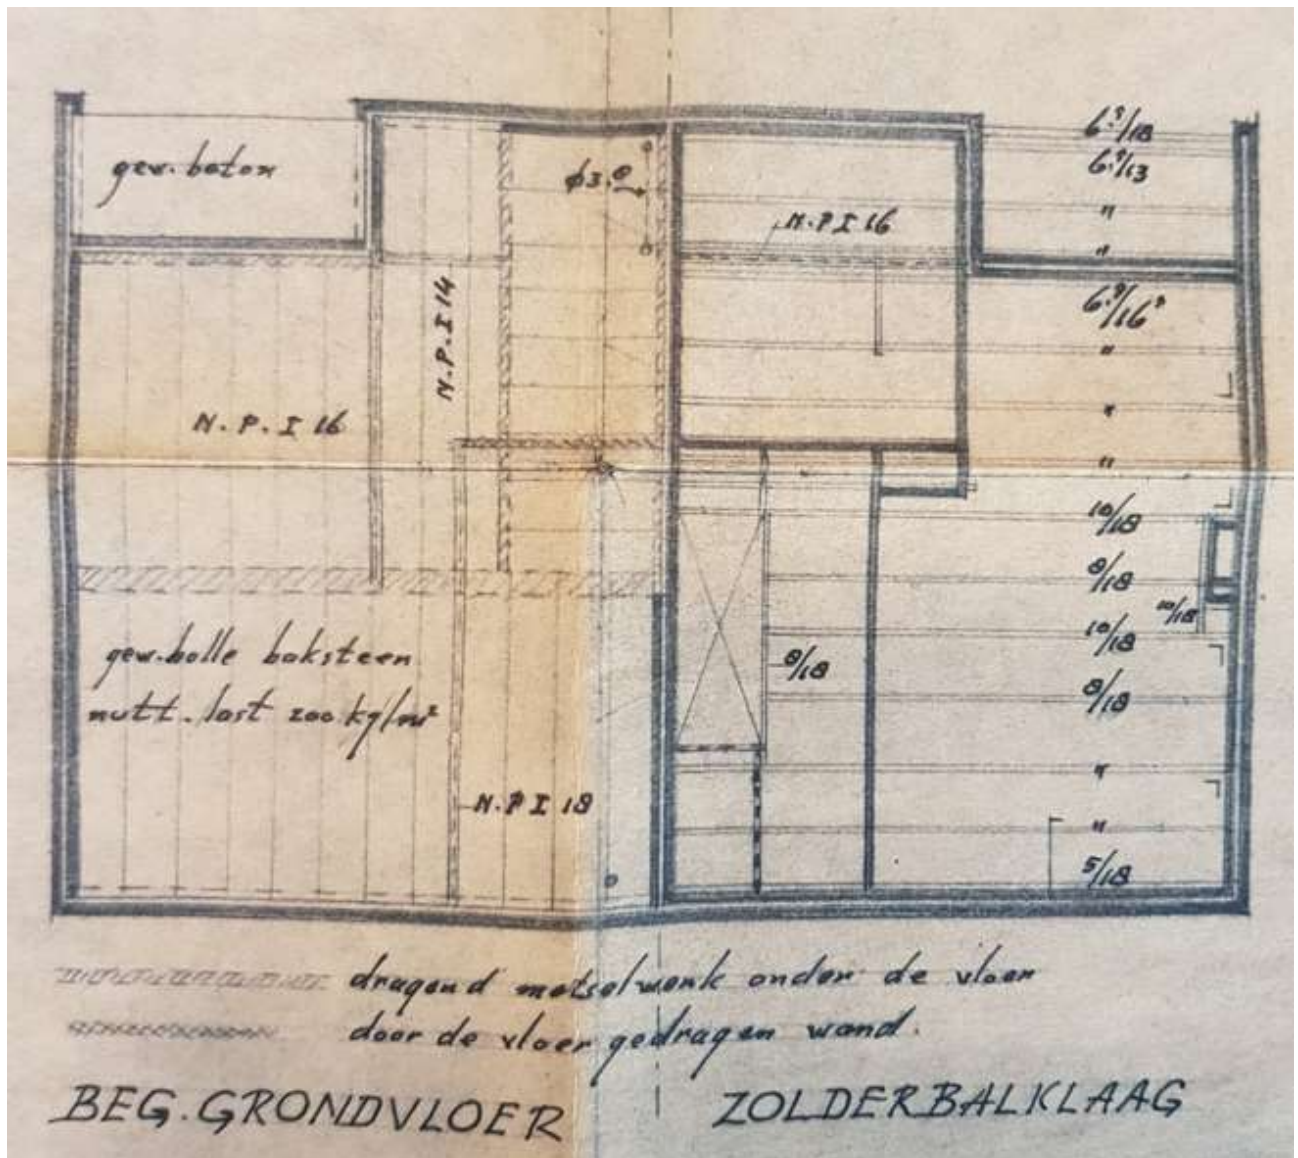 gew. beton
N.P.I 14
N.P.I 16
gew. holle baksteen
nutt. last 200 kg/m²
N.P.I 18
ø3.⁰
N.P.I 16
8/18
6.⁹/18
6.⁹/13
"
"
6.⁹/16⁹
"
"
"
10/18
8/18
10/18
10/18
8/18
"
"
5/18
dragend metselwerk onder de vloer
door de vloer gedragen wand.
BEG. GRONDVLOER
ZOLDERBALKLAAG